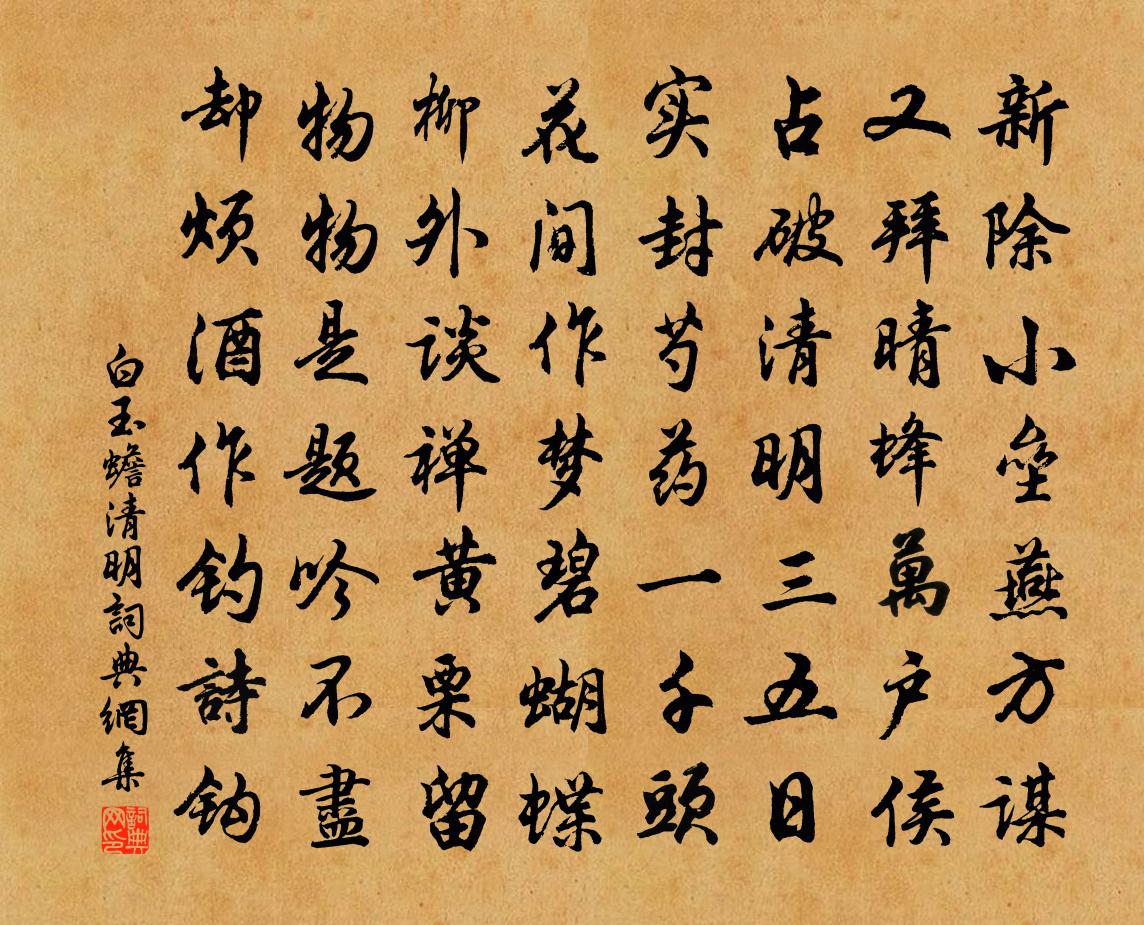 新除小垒燕方谋
又拜晴蜂萬户侯
占破清明三五日
实封芍药一千头
花间作梦碧蝴蝶
柳外谈禅黄栗留
物物是题吟不盡
却烦酒作钓詩钩
白玉蟾清明詞典網集
詞典網印